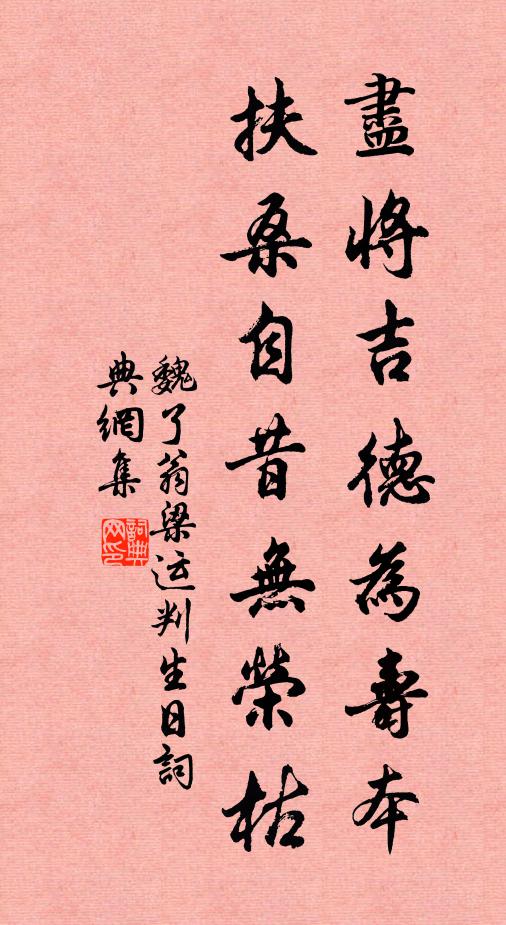 盡將吉德為壽本
扶桑自昔無榮枯
魏了翁梁运判生日詞
典網集
詞典
网印